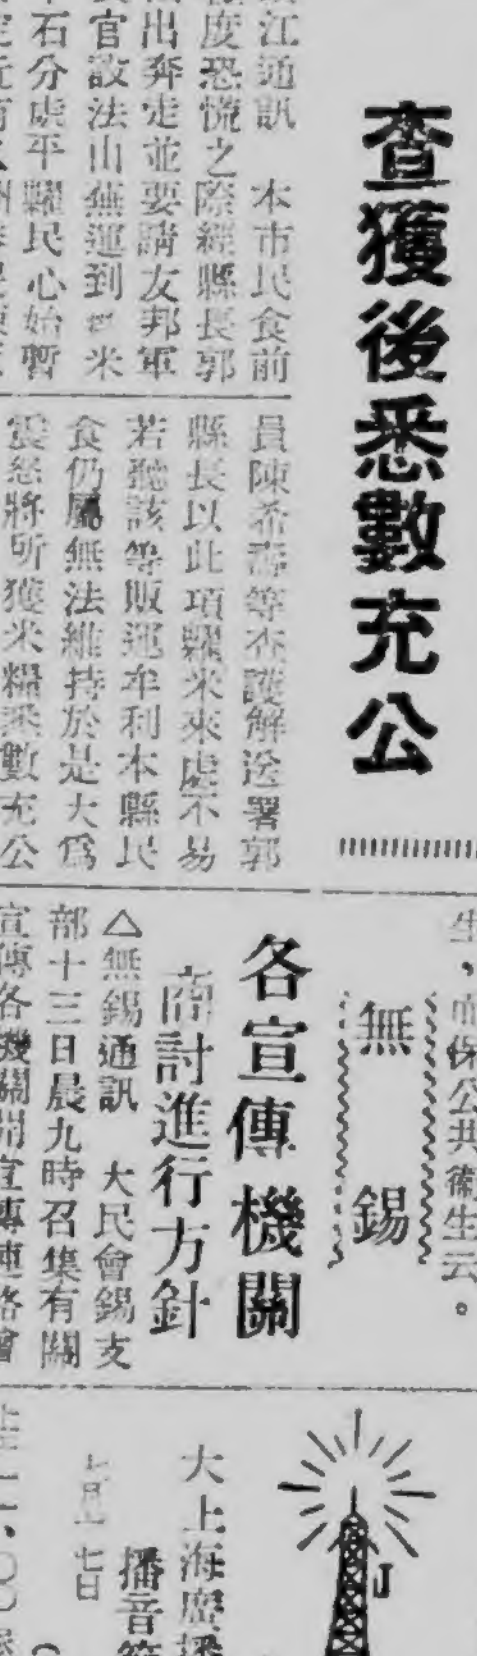 查獲後悉數充公
江通訊　本市民食前
度恐慌之際經縣長郭
出奔走並要請友邦軍
官設法由蕪運到米
石分處平糶民心始暫
員陳希壽等查護解送署郭
縣長以此項糶米來處不易
若聽該等販運牟利本縣民
食仍屬無法維持於是大爲
震怒將所獲米糧悉數充公
生，而保公共衞生云。
無錫
各宣傳機關
商討進行方針
△無錫通訊　大民會錫支
部十三日晨九時召集有關
宣傳各機關開宣傳連絡會
大上海廣播
播音節
七月十七日